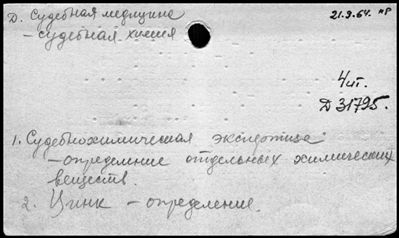 Д. Судебная медицина 21.9.64. нр
- судебная химия
4 шт.
Д 31795.
1. Судебнохимическая экспертиза
- определение отдельных химических
веществ.
2. Цинк - определение.